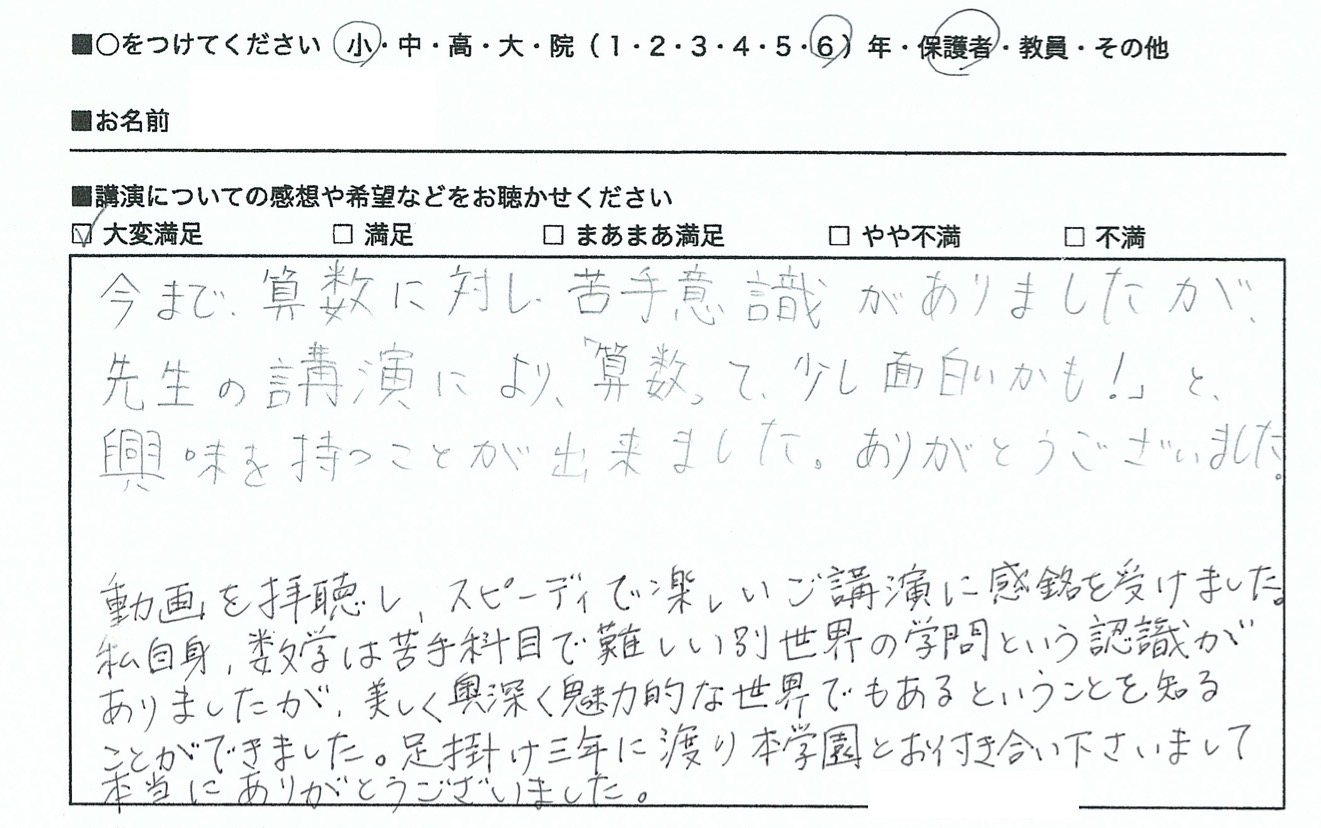 ■○をつけてください 小・中・高・大・院（1・2・3・4・5・6）年・保護者・教員・その他
■お名前
■講演についての感想や希望などをお聴かせください
☑ 大変満足 □ 満足 □ まあまあ満足 □ やや不満 □ 不満
今まで、算数に対し苦手意識がありましたが、
先生の講演により、「算数って、少し面白いかも！」と、
興味を持つことが出来ました。ありがとうございました。
動画を拝聴し、スピーディで楽しいご講演に感銘を受けました。
私自身、数学は苦手科目で難しい別世界の学問という認識が
ありましたが、美しく奥深く魅力的な世界でもあるということを知る
ことができました。足掛け三年に渡り本学園とお付き合い下さいまして
本当にありがとうございました。